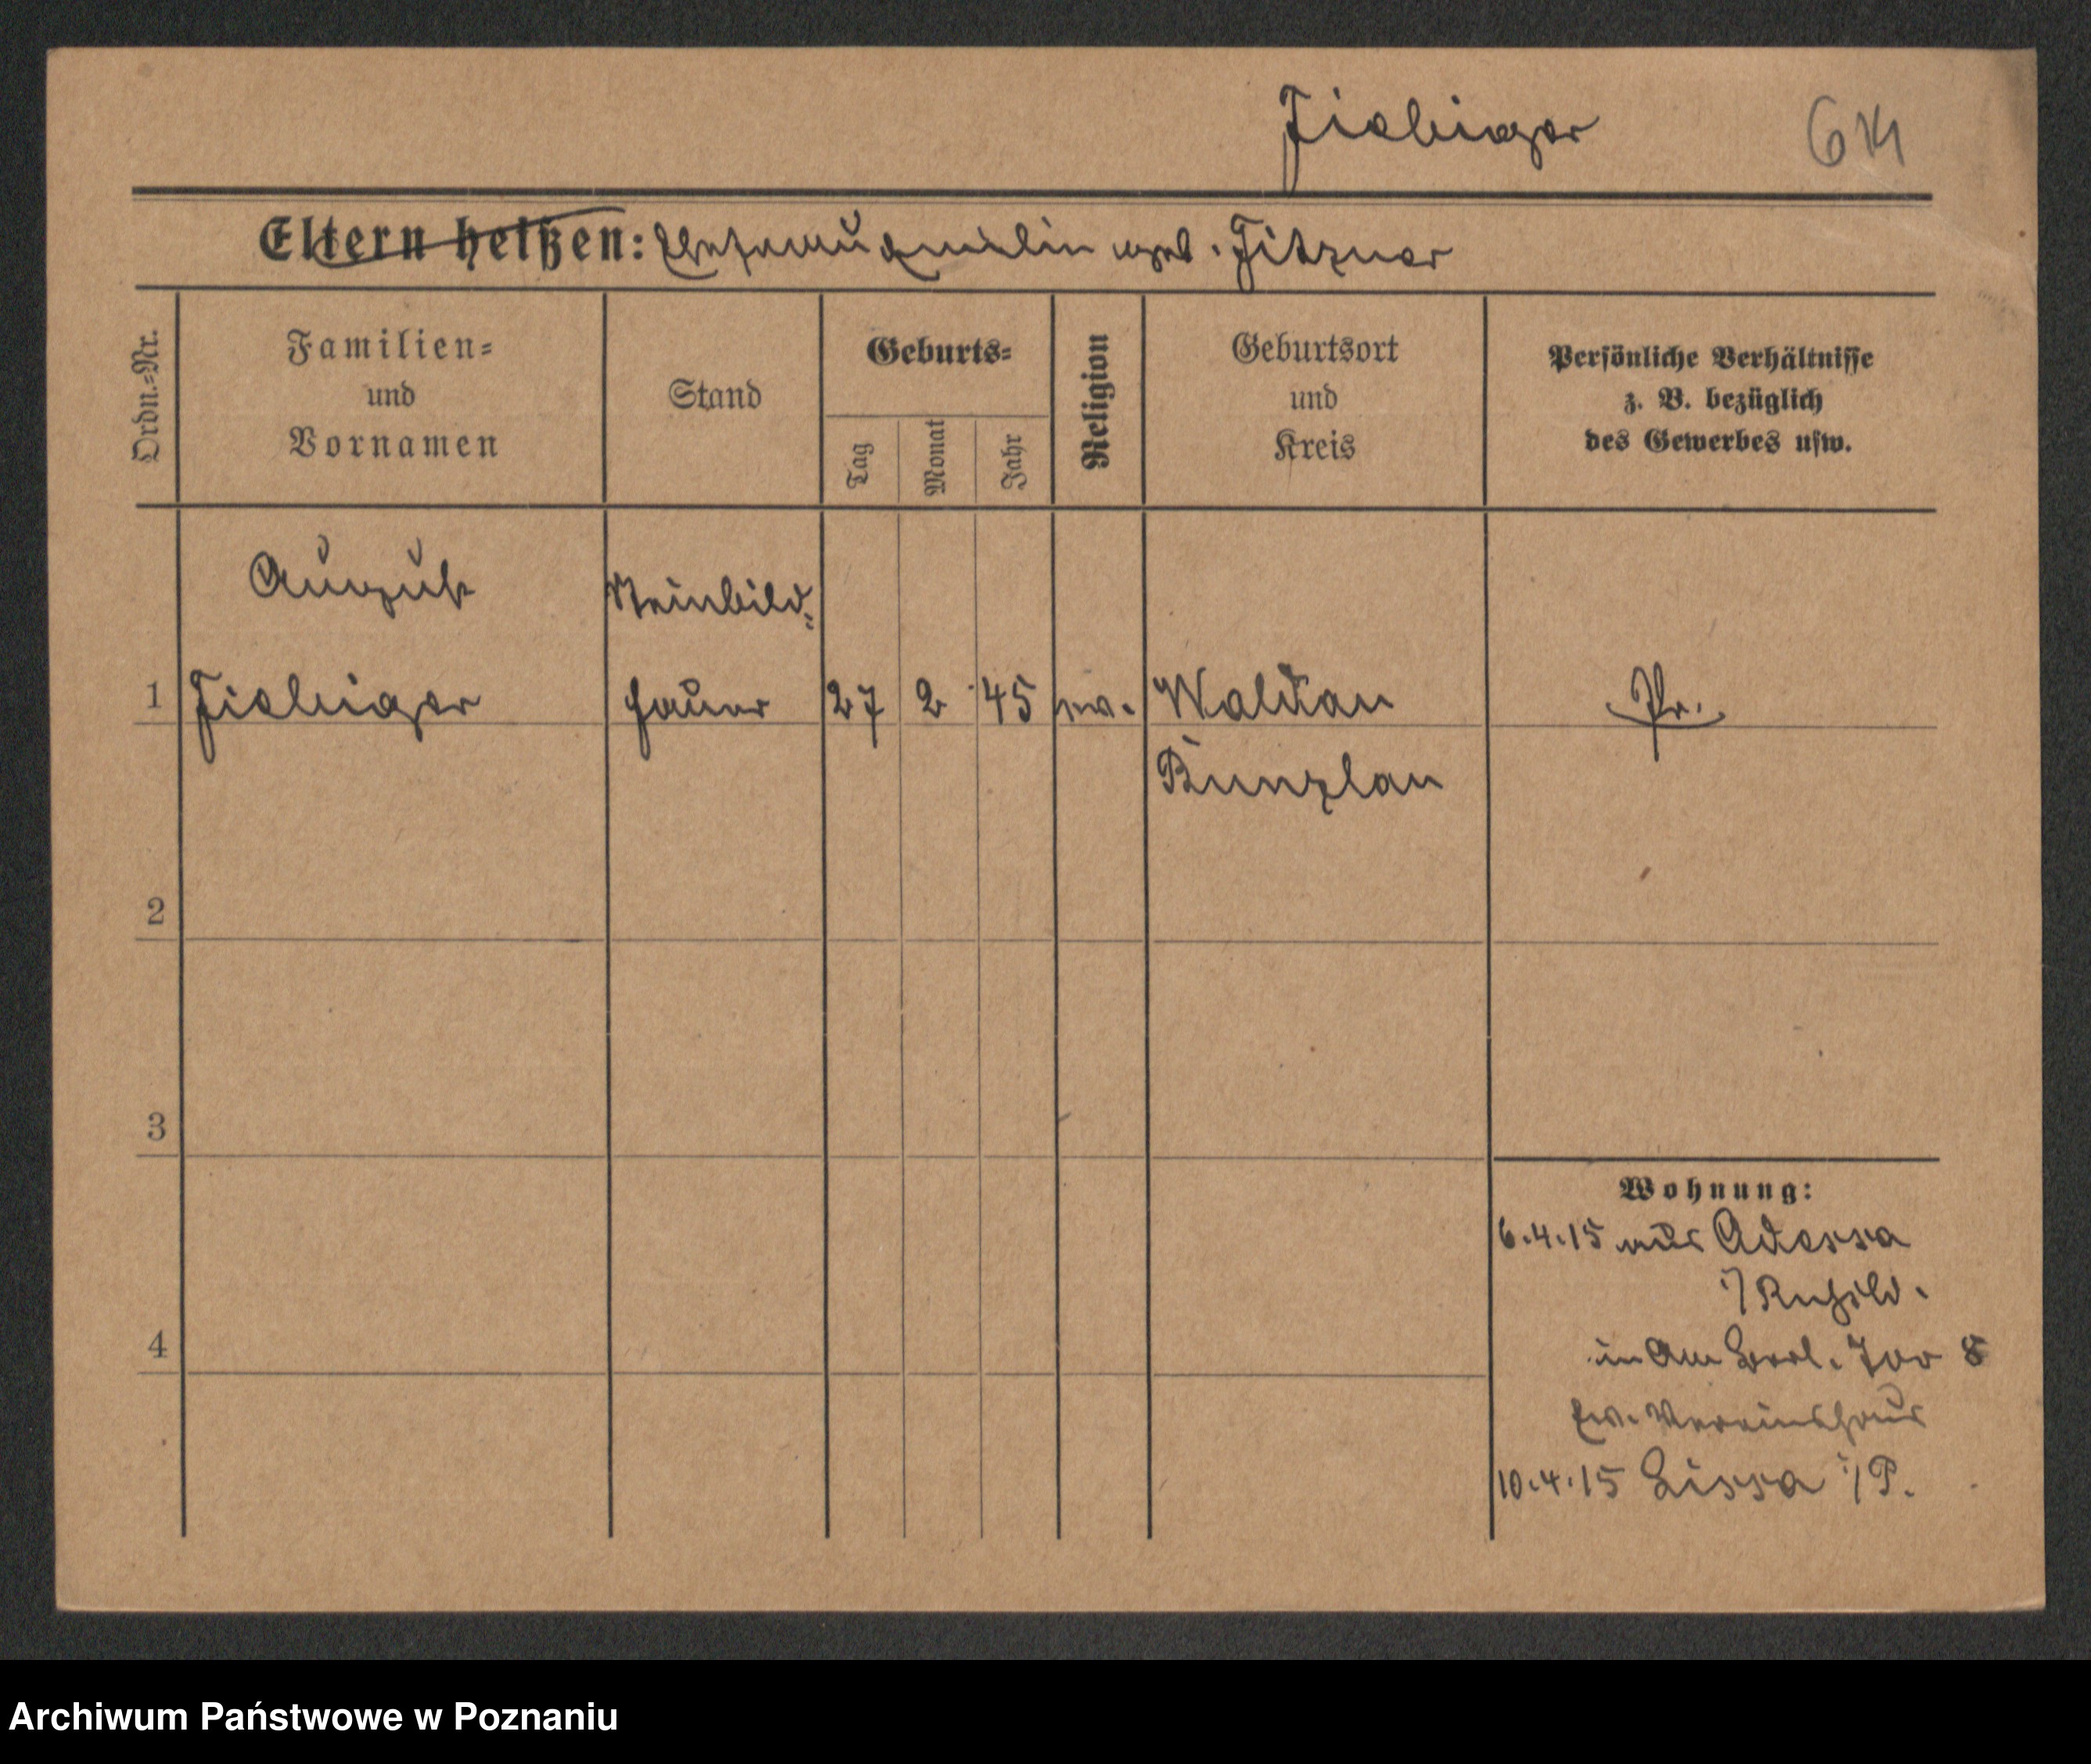 Fiebiger
614
Eltern heißen: Ehefrau Emilie geb. Fitzner
Ordn.-Nr.
Familien-
und
Vornamen
Stand
Geburts-
Tag
Monat
Jahr
Religion
Geburtsort
und
Kreis
Persönliche Verhältnisse
z. B. bezüglich
des Gewerbes usw.
August
Steinbild-
1 Fiebiger hauer 27 2 45 ev. Waldau Pr.
Bunzlau
2
3
4
Wohnung:
6.4.15 aus Odessa
i/Rußld.
in Am Berl. Tor 8
Ev. Vereinshaus
10.4.15 Lissa i/P.
Archiwum Państwowe w Poznaniu